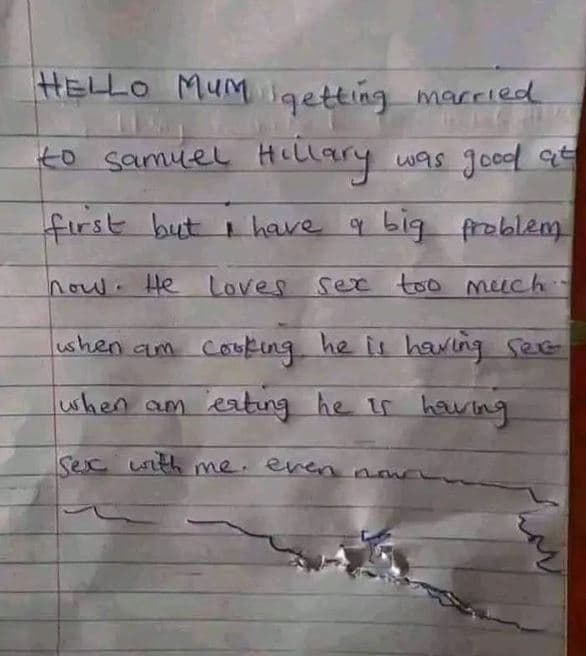 HELLO MUM getting married
to samuel Hillary was good at
first but i have a big problem
now. He loves sex too much.
when am cooking he is having sex
when am eating he is having
sex with me. even now